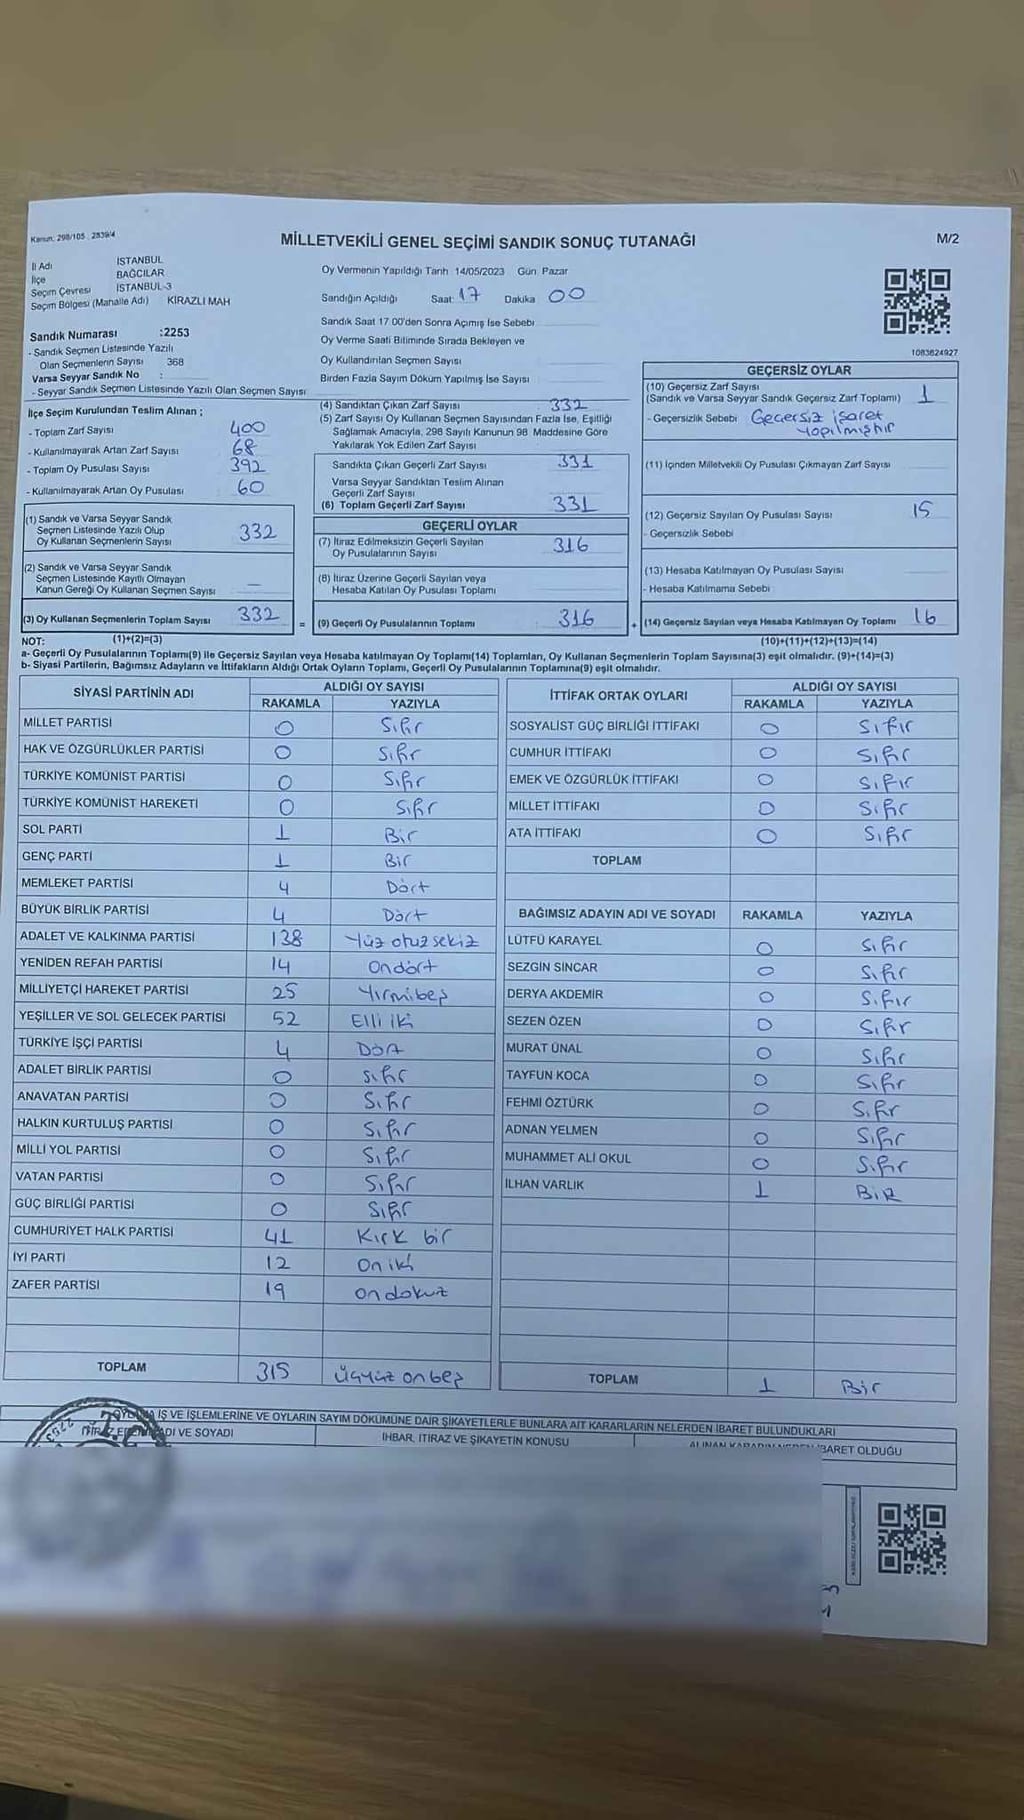 Kanun: 298/105 : 2839/4
MİLLETVEKİLİ GENEL SEÇİMİ SANDIK SONUÇ TUTANAĞI
M/2
İl Adı İSTANBUL
İlçe BAĞCILAR
Seçim Çevresi İSTANBUL-3
Seçim Bölgesi (Mahalle Adı) KİRAZLI MAH
Sandık Numarası :2253
- Sandık Seçmen Listesinde Yazılı
Olan Seçmenlerin Sayısı 368
Varsa Seyyar Sandık No :
- Seyyar Sandık Seçmen Listesinde Yazılı Olan Seçmen Sayısı
Oy Vermenin Yapıldığı Tarih 14/05/2023 Gün Pazar
Sandığın Açıldığı Saat: 17 Dakika 00
Sandık Saat 17.00'den Sonra Açılmış İse Sebebi
Oy Verme Saati Bitiminde Sırada Bekleyen ve
Oy Kullandırılan Seçmen Sayısı
Birden Fazla Sayım Döküm Yapılmış İse Sayısı
1083624927
İlçe Seçim Kurulundan Teslim Alınan ;
- Toplam Zarf Sayısı 400
- Kullanılmayarak Artan Zarf Sayısı 68
- Toplam Oy Pusulası Sayısı 392
- Kullanılmayarak Artan Oy Pusulası 60
(1) Sandık ve Varsa Seyyar Sandık
Seçmen Listesinde Yazılı Olup
Oy Kullanan Seçmenlerin Sayısı 332
(2) Sandık ve Varsa Seyyar Sandık
Seçmen Listesinde Kayıtlı Olmayan
Kanun Gereği Oy Kullanan Seçmen Sayısı —
(3) Oy Kullanan Seçmenlerin Toplam Sayısı 332
(4) Sandıktan Çıkan Zarf Sayısı 332
(5) Zarf Sayısı Oy Kullanan Seçmen Sayısından Fazla İse, Eşitliği
Sağlamak Amacıyla, 298 Sayılı Kanunun 98. Maddesine Göre
Yakılarak Yok Edilen Zarf Sayısı
Sandıkta Çıkan Geçerli Zarf Sayısı 331
Varsa Seyyar Sandıktan Teslim Alınan
Geçerli Zarf Sayısı
(6) Toplam Geçerli Zarf Sayısı 331
GEÇERLİ OYLAR
(7) İtiraz Edilmeksizin Geçerli Sayılan
Oy Pusulalarının Sayısı 316
(8) İtiraz Üzerine Geçerli Sayılan veya
Hesaba Katılan Oy Pusulası Toplamı
= (9) Geçerli Oy Pusulalarının Toplamı 316
GEÇERSİZ OYLAR
(10) Geçersiz Zarf Sayısı
(Sandık ve Varsa Seyyar Sandık Geçersiz Zarf Toplamı) 1
- Geçersizlik Sebebi Geçersiz işaret
yapılmıştır
(11) İçinden Milletvekili Oy Pusulası Çıkmayan Zarf Sayısı
(12) Geçersiz Sayılan Oy Pusulası Sayısı 15
- Geçersizlik Sebebi
(13) Hesaba Katılmayan Oy Pusulası Sayısı
- Hesaba Katılmama Sebebi
+ (14) Geçersiz Sayılan veya Hesaba Katılmayan Oy Toplamı 16
NOT: (1)+(2)=(3) (10)+(11)+(12)+(13)=(14)
a- Geçerli Oy Pusulalarının Toplamı(9) ile Geçersiz Sayılan veya Hesaba katılmayan Oy Toplamı(14) Toplamları, Oy Kullanan Seçmenlerin Toplam Sayısına(3) eşit olmalıdır. (9)+(14)=(3)
b- Siyasi Partilerin, Bağımsız Adayların ve İttifakların Aldığı Ortak Oyların Toplamı, Geçerli Oy Pusulalarının Toplamına(9) eşit olmalıdır.
SİYASİ PARTİNİN ADI ALDIĞI OY SAYISI
RAKAMLA YAZIYLA
MİLLET PARTİSİ 0 Sıfır
HAK VE ÖZGÜRLÜKLER PARTİSİ 0 Sıfır
TÜRKİYE KOMÜNİST PARTİSİ 0 Sıfır
TÜRKİYE KOMÜNİST HAREKETİ 0 Sıfır
SOL PARTİ 1 Bir
GENÇ PARTİ 1 Bir
MEMLEKET PARTİSİ 4 Dört
BÜYÜK BİRLİK PARTİSİ 4 Dört
ADALET VE KALKINMA PARTİSİ 138 Yüz otuz sekiz
YENİDEN REFAH PARTİSİ 14 Ondört
MİLLİYETÇİ HAREKET PARTİSİ 25 Yirmibeş
YEŞİLLER VE SOL GELECEK PARTİSİ 52 Elli iki
TÜRKİYE İŞÇİ PARTİSİ 4 Dört
ADALET BİRLİK PARTİSİ 0 Sıfır
ANAVATAN PARTİSİ 0 Sıfır
HALKIN KURTULUŞ PARTİSİ 0 Sıfır
MİLLİ YOL PARTİSİ 0 Sıfır
VATAN PARTİSİ 0 Sıfır
GÜÇ BİRLİĞİ PARTİSİ 0 Sıfır
CUMHURİYET HALK PARTİSİ 41 Kırk bir
İYİ PARTİ 12 On iki
ZAFER PARTİSİ 19 on dokuz
TOPLAM 315 üçyüz on beş
İTTİFAK ORTAK OYLARI ALDIĞI OY SAYISI
RAKAMLA YAZIYLA
SOSYALİST GÜÇ BİRLİĞİ İTTİFAKI 0 Sıfır
CUMHUR İTTİFAKI 0 Sıfır
EMEK VE ÖZGÜRLÜK İTTİFAKI 0 Sıfır
MİLLET İTTİFAKI 0 Sıfır
ATA İTTİFAKI 0 Sıfır
TOPLAM
BAĞIMSIZ ADAYIN ADI VE SOYADI RAKAMLA YAZIYLA
LÜTFÜ KARAYEL 0 Sıfır
SEZGİN SİNCAR 0 Sıfır
DERYA AKDEMİR 0 Sıfır
SEZEN ÖZEN 0 Sıfır
MURAT ÜNAL 0 Sıfır
TAYFUN KOCA 0 Sıfır
FEHMİ ÖZTÜRK 0 Sıfır
ADNAN YELMEN 0 Sıfır
MUHAMMET ALİ OKUL 0 Sıfır
İLHAN VARLIK 1 BİR
TOPLAM 1 Bir
İŞ VE İŞLEMLERİNE VE OYLARIN SAYIM DÖKÜMÜNE DAİR ŞİKAYETLERLE BUNLARA AİT KARARLARIN NELERDEN İBARET BULUNDUKLARI
ADI VE SOYADI İHBAR, İTİRAZ VE ŞİKAYETİN KONUSU İBARET OLDUĞU
2253